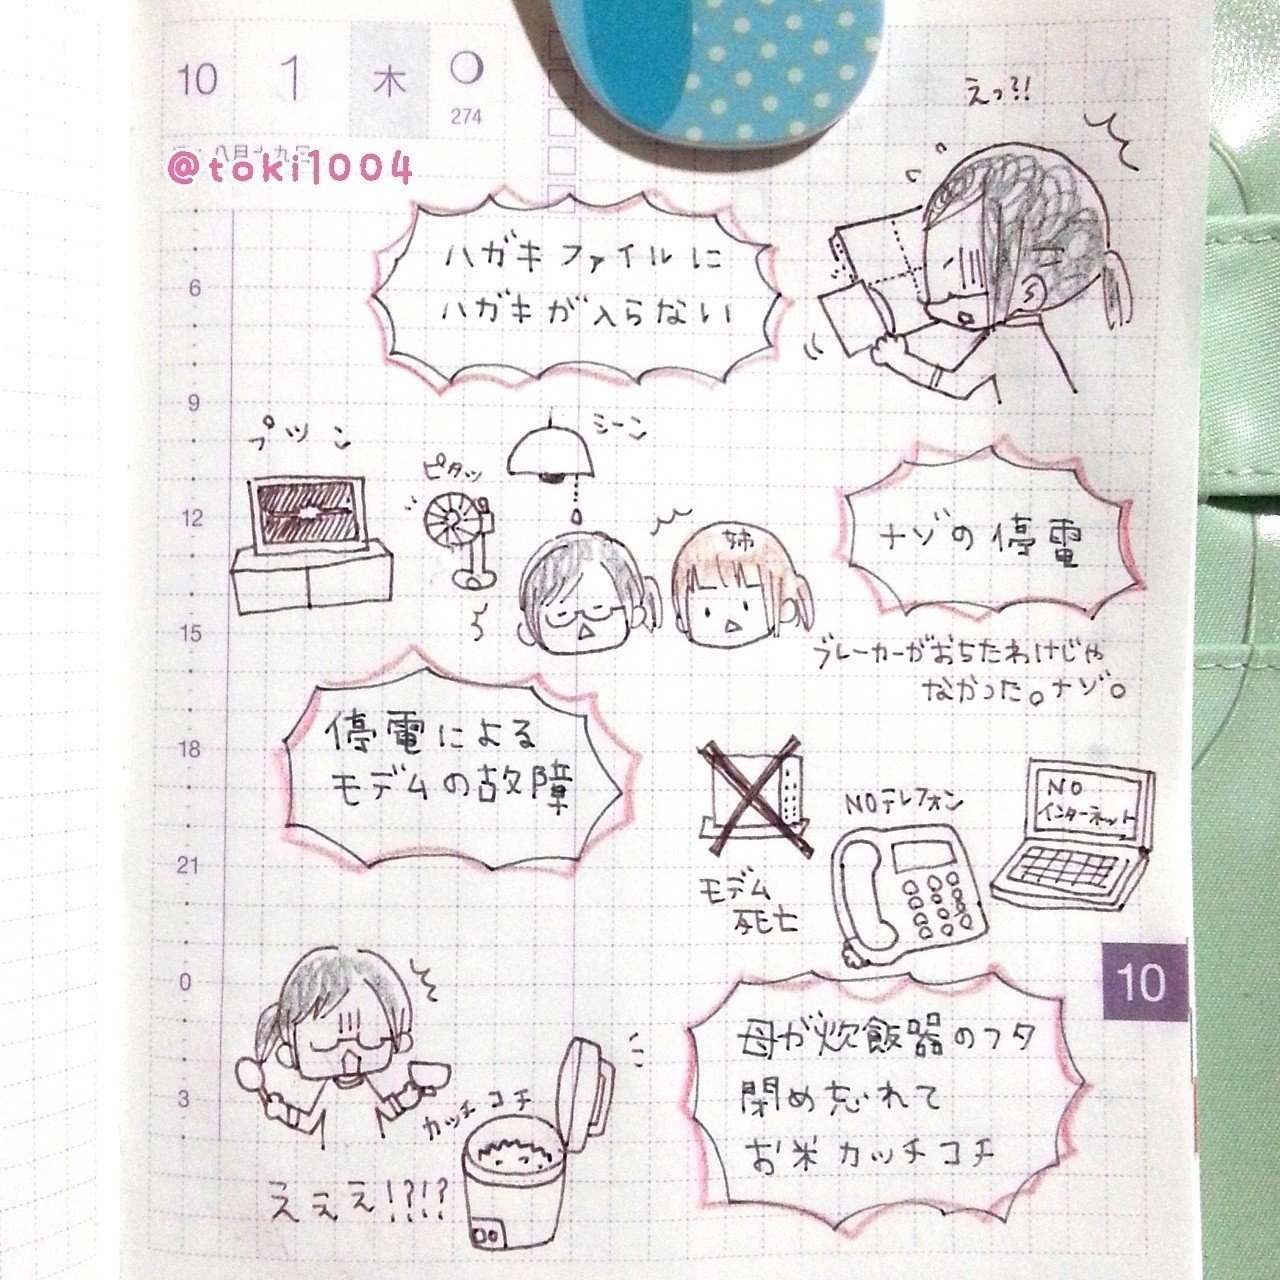 10 1 木
274
@toki1004
えっ?!
ハガキファイルに
ハガキが入らない
6
9
プツン
ピタッ
シーン
12
姉
ナゾの停電
15
ブレーカーがおちたわけじゃ
なかった。ナゾ。
停電による
モデムの故障
18
NOテレフォン
NO
インターネット
21
モデム
死亡
0
10
母が炊飯器のフタ
閉め忘れて
お米カッチコチ
3
カッチコチ
えぇえ!?!?